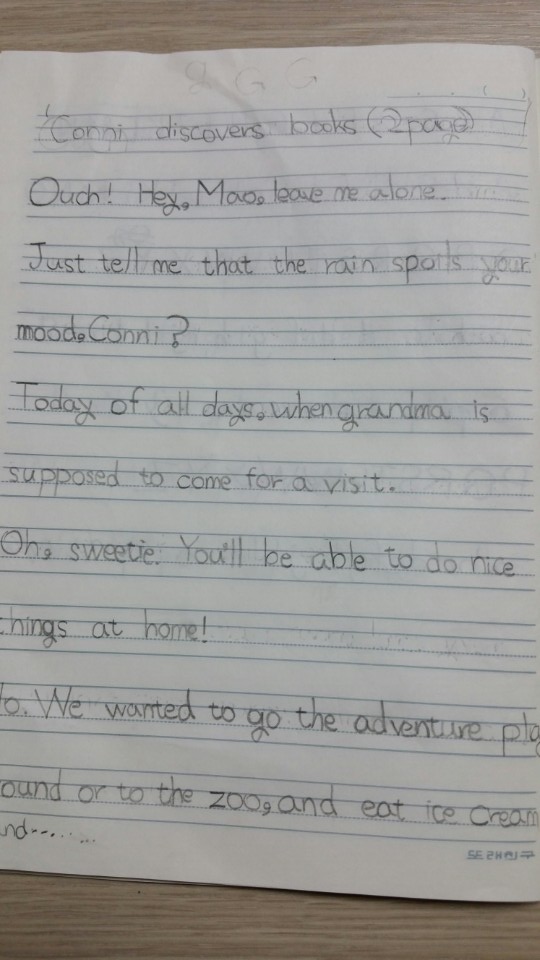 Conni discovers books (2page)
Ouch! Hey, Mao, leave me alone.
Just tell me that the rain spoils your
mood, Conni?
Today of all days, when grandma is
supposed to come for a visit.
Oh, sweetie. You'll be able to do nice
things at home!
No. We wanted to go the adventure pla
ound or to the zoo, and eat ice cream
nd........